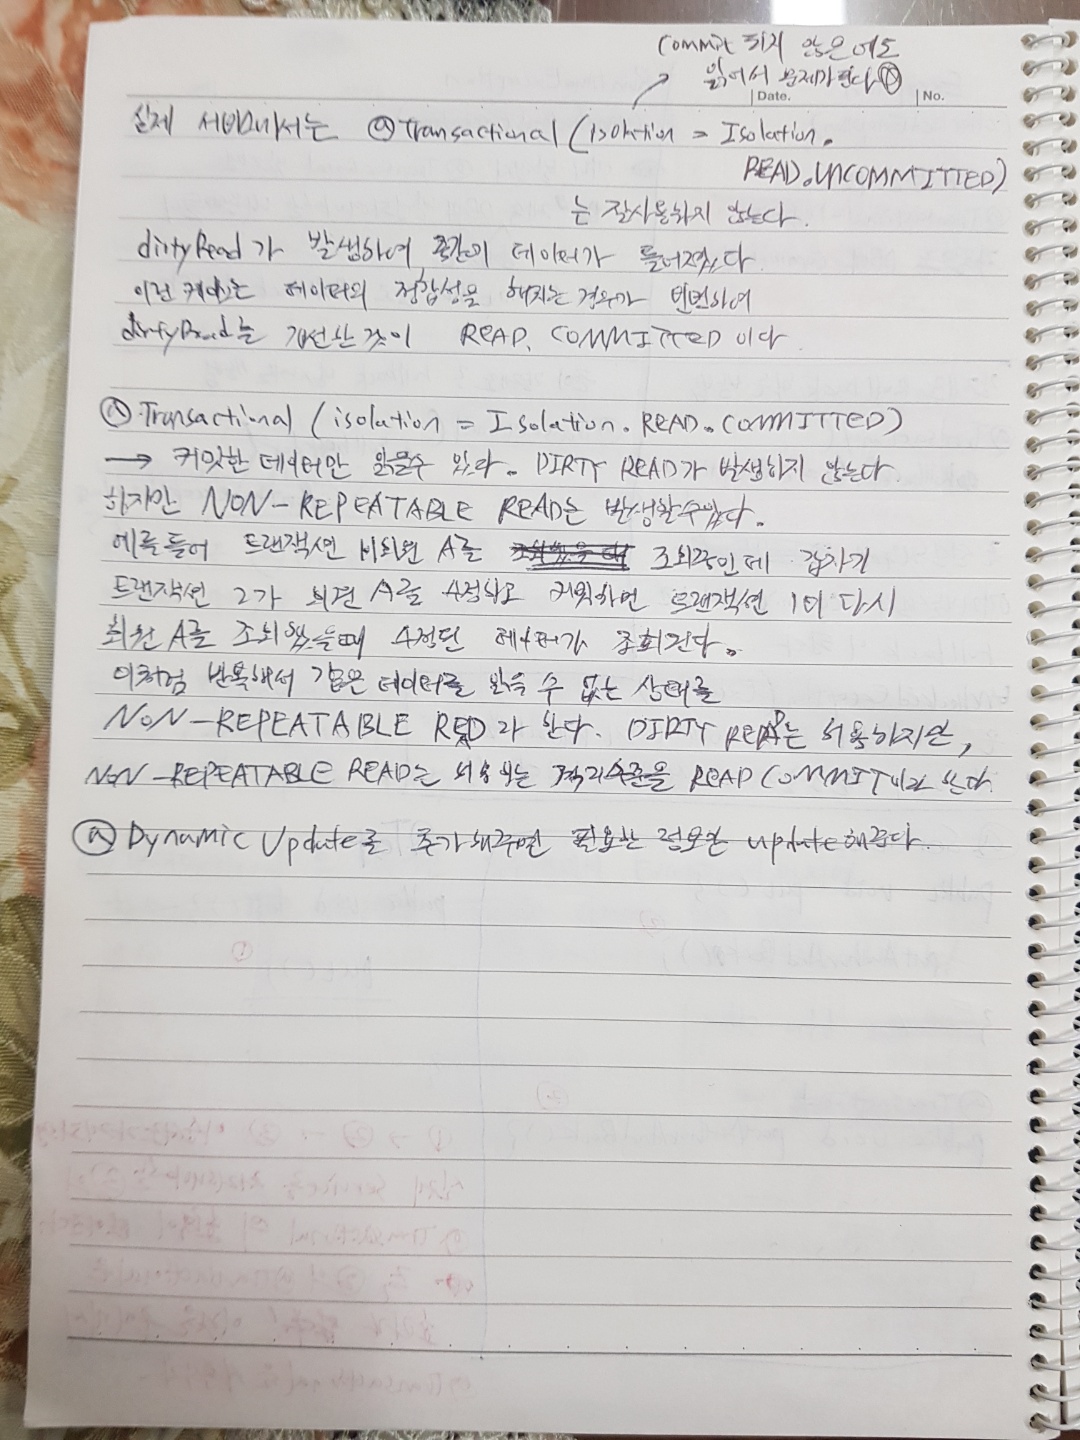 commit 되지 않은 에도
읽어서 문제가 된다
Date.
No.
실제 서비스에서는 @Transactional (isolation = Isolation.
READ.UNCOMMITTED)
는 잘사용하지 않는다.
dirtyRead가 발생하여 중간에 데이터가 틀어졌다
이런 케이스는 데이터의 정합성을 해치는 경우가 빈번하여
dirtyRead를 개선한 것이 READ. COMMITTED 이다
@Transactional (isolation = Isolation.READ.COMMITTED)
→ 커밋한 데이터만 읽을수 있다. DIRTY READ가 발생하지 않는다
하지만 NON-REPEATABLE READ는 발생할수있다.
예를들어 트랜잭션 회원 A를 조회중인데 갑자기
트랜잭션 2가 회원 A를 수정하고 커밋하면 트랜잭션 1이 다시
회원 A를 조회했을때 수정된 데이터가 조회된다.
이처럼 반복해서 같은 데이터를 읽을 수 없는 상태를
NON-REPEATABLE READ라 한다. DIRTY READ는 허용하지만,
NON-REPEATABLE READ는 허용하는 격리수준을 READ COMMIT 이라 한다
@Dynamic Update를 추가해주면 필요한 정보만 update해준다.